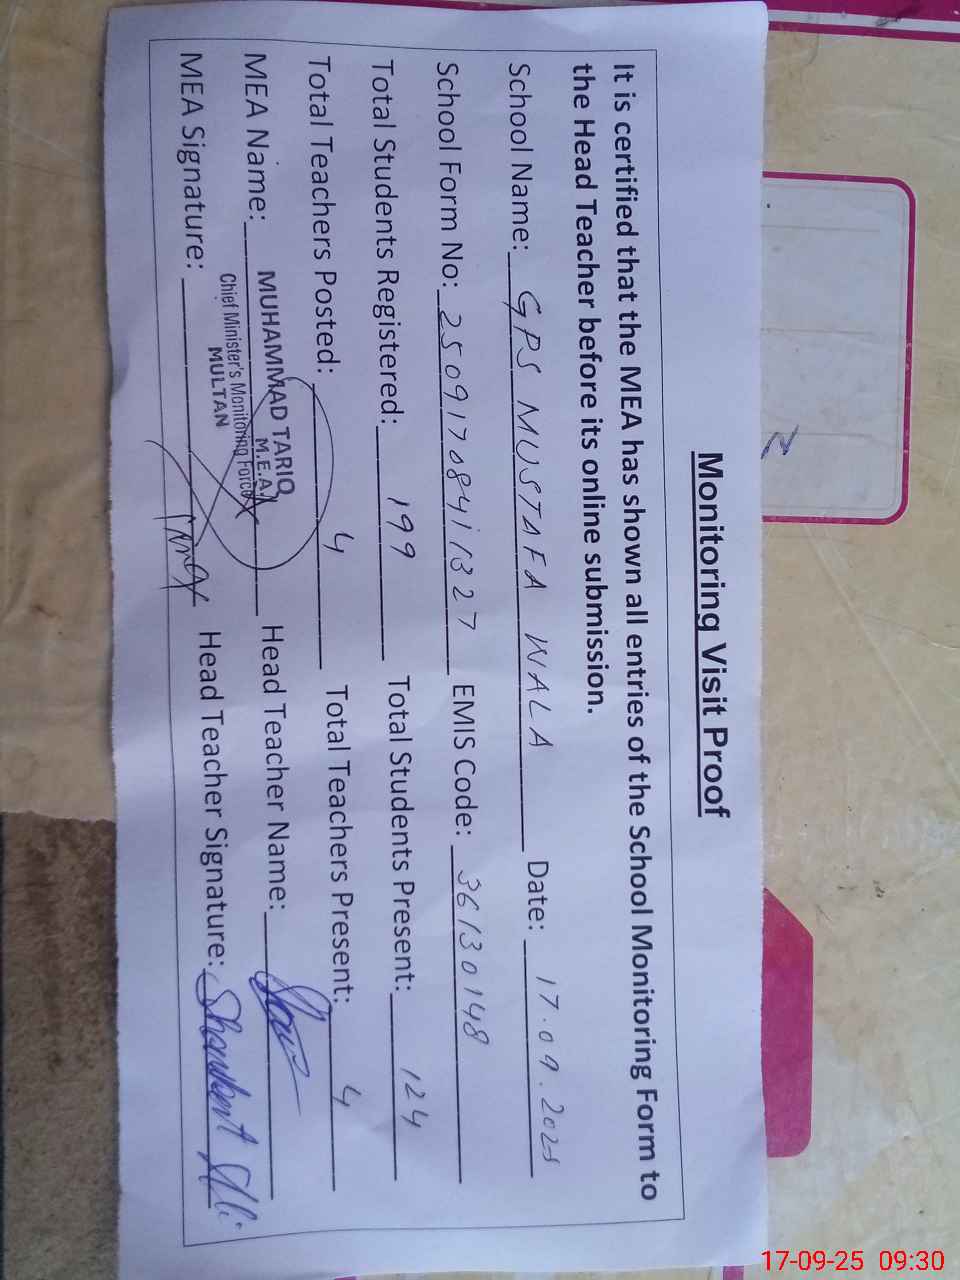 Monitoring Visit Proof
It is certified that the MEA has shown all entries of the School Monitoring Form to
the Head Teacher before its online submission.
School Name: GPS MUSTAFA WALA Date: 17.09.2025
School Form No: 2509170841327 EMIS Code: 36130148
Total Students Registered: 199 Total Students Present: 124
Total Teachers Posted: 4 Total Teachers Present: 4
MEA Name: MUHAMMAD TARIQ Head Teacher Name:
M.E.A.
Chief Minister's Monitoring Force
MULTAN
MEA Signature: Head Teacher Signature: Shaukat Ali
17-09-25 09:30